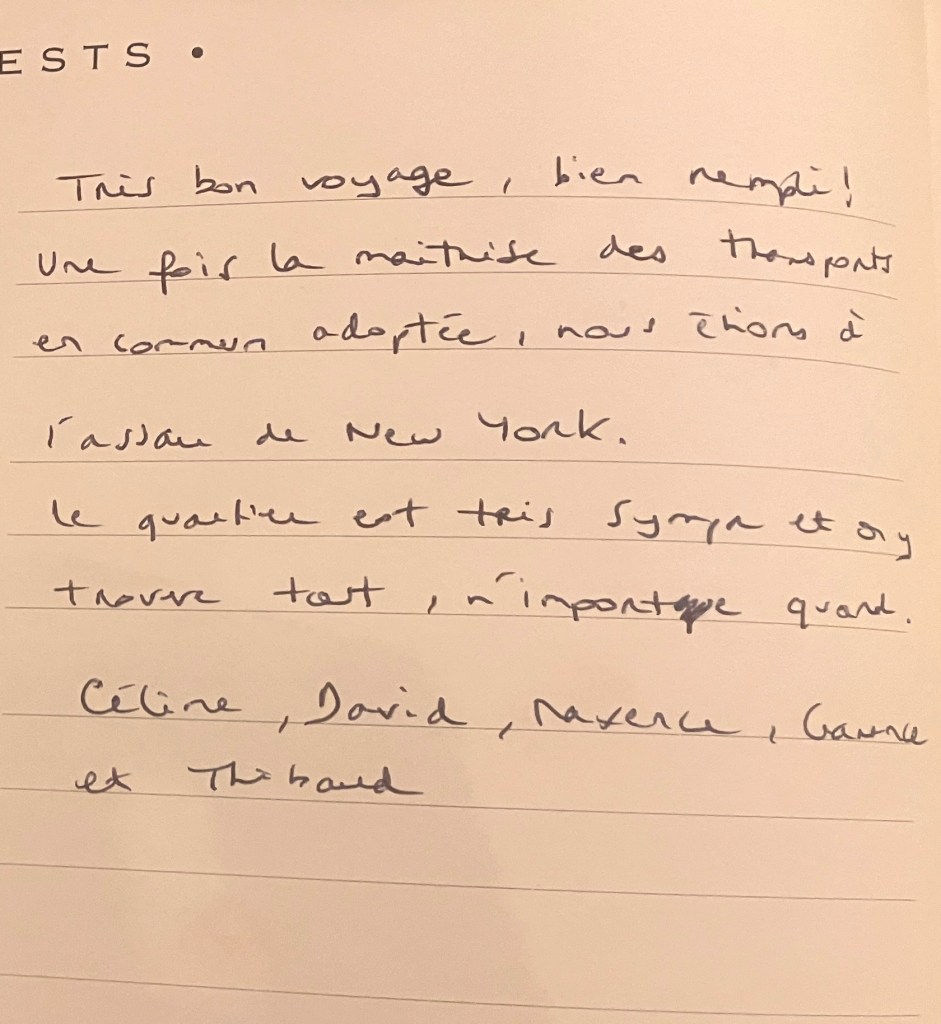 ESTS •
Très bon voyage, bien rempli!
Une fois la maîtrise des transports
en commun adoptée, nous étions à
l'assau de New York.
Le quartier est très sympa et on y
trouve tout, n'importe quand.
Céline, David, Maxence, Garance
et Thibaud